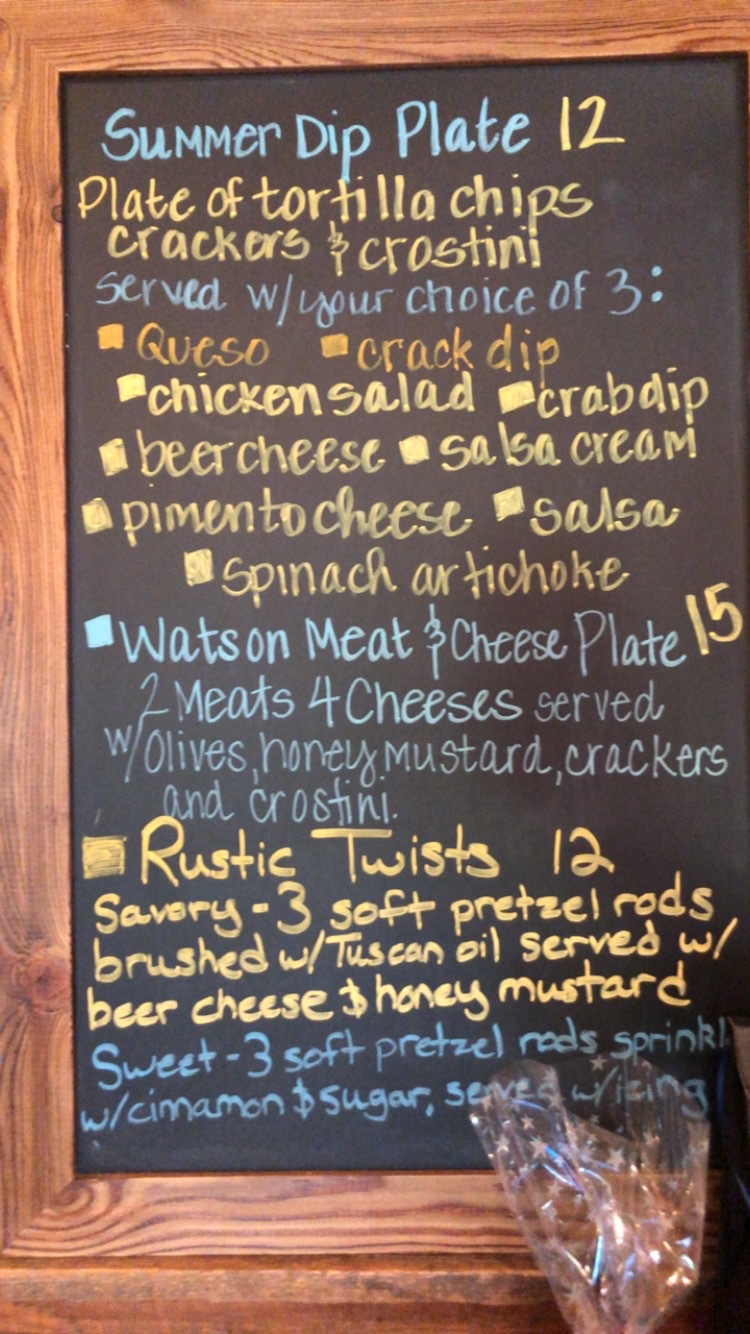 Summer Dip Plate 12
Plate of tortilla chips
crackers & crostini
served w/your choice of 3:
Queso crack dip
chicken salad crab dip
beer cheese salsa cream
pimento cheese salsa
spinach artichoke
Watson Meat & Cheese Plate 15
2 Meats 4 Cheeses served
w/Olives, honey mustard, crackers
and crostini.
Rustic Twists 12
Savory - 3 soft pretzel rods
brushed w/Tuscan oil served w/
beer cheese & honey mustard
Sweet - 3 soft pretzel rods sprinkl
w/cinnamon & sugar, served w/icing